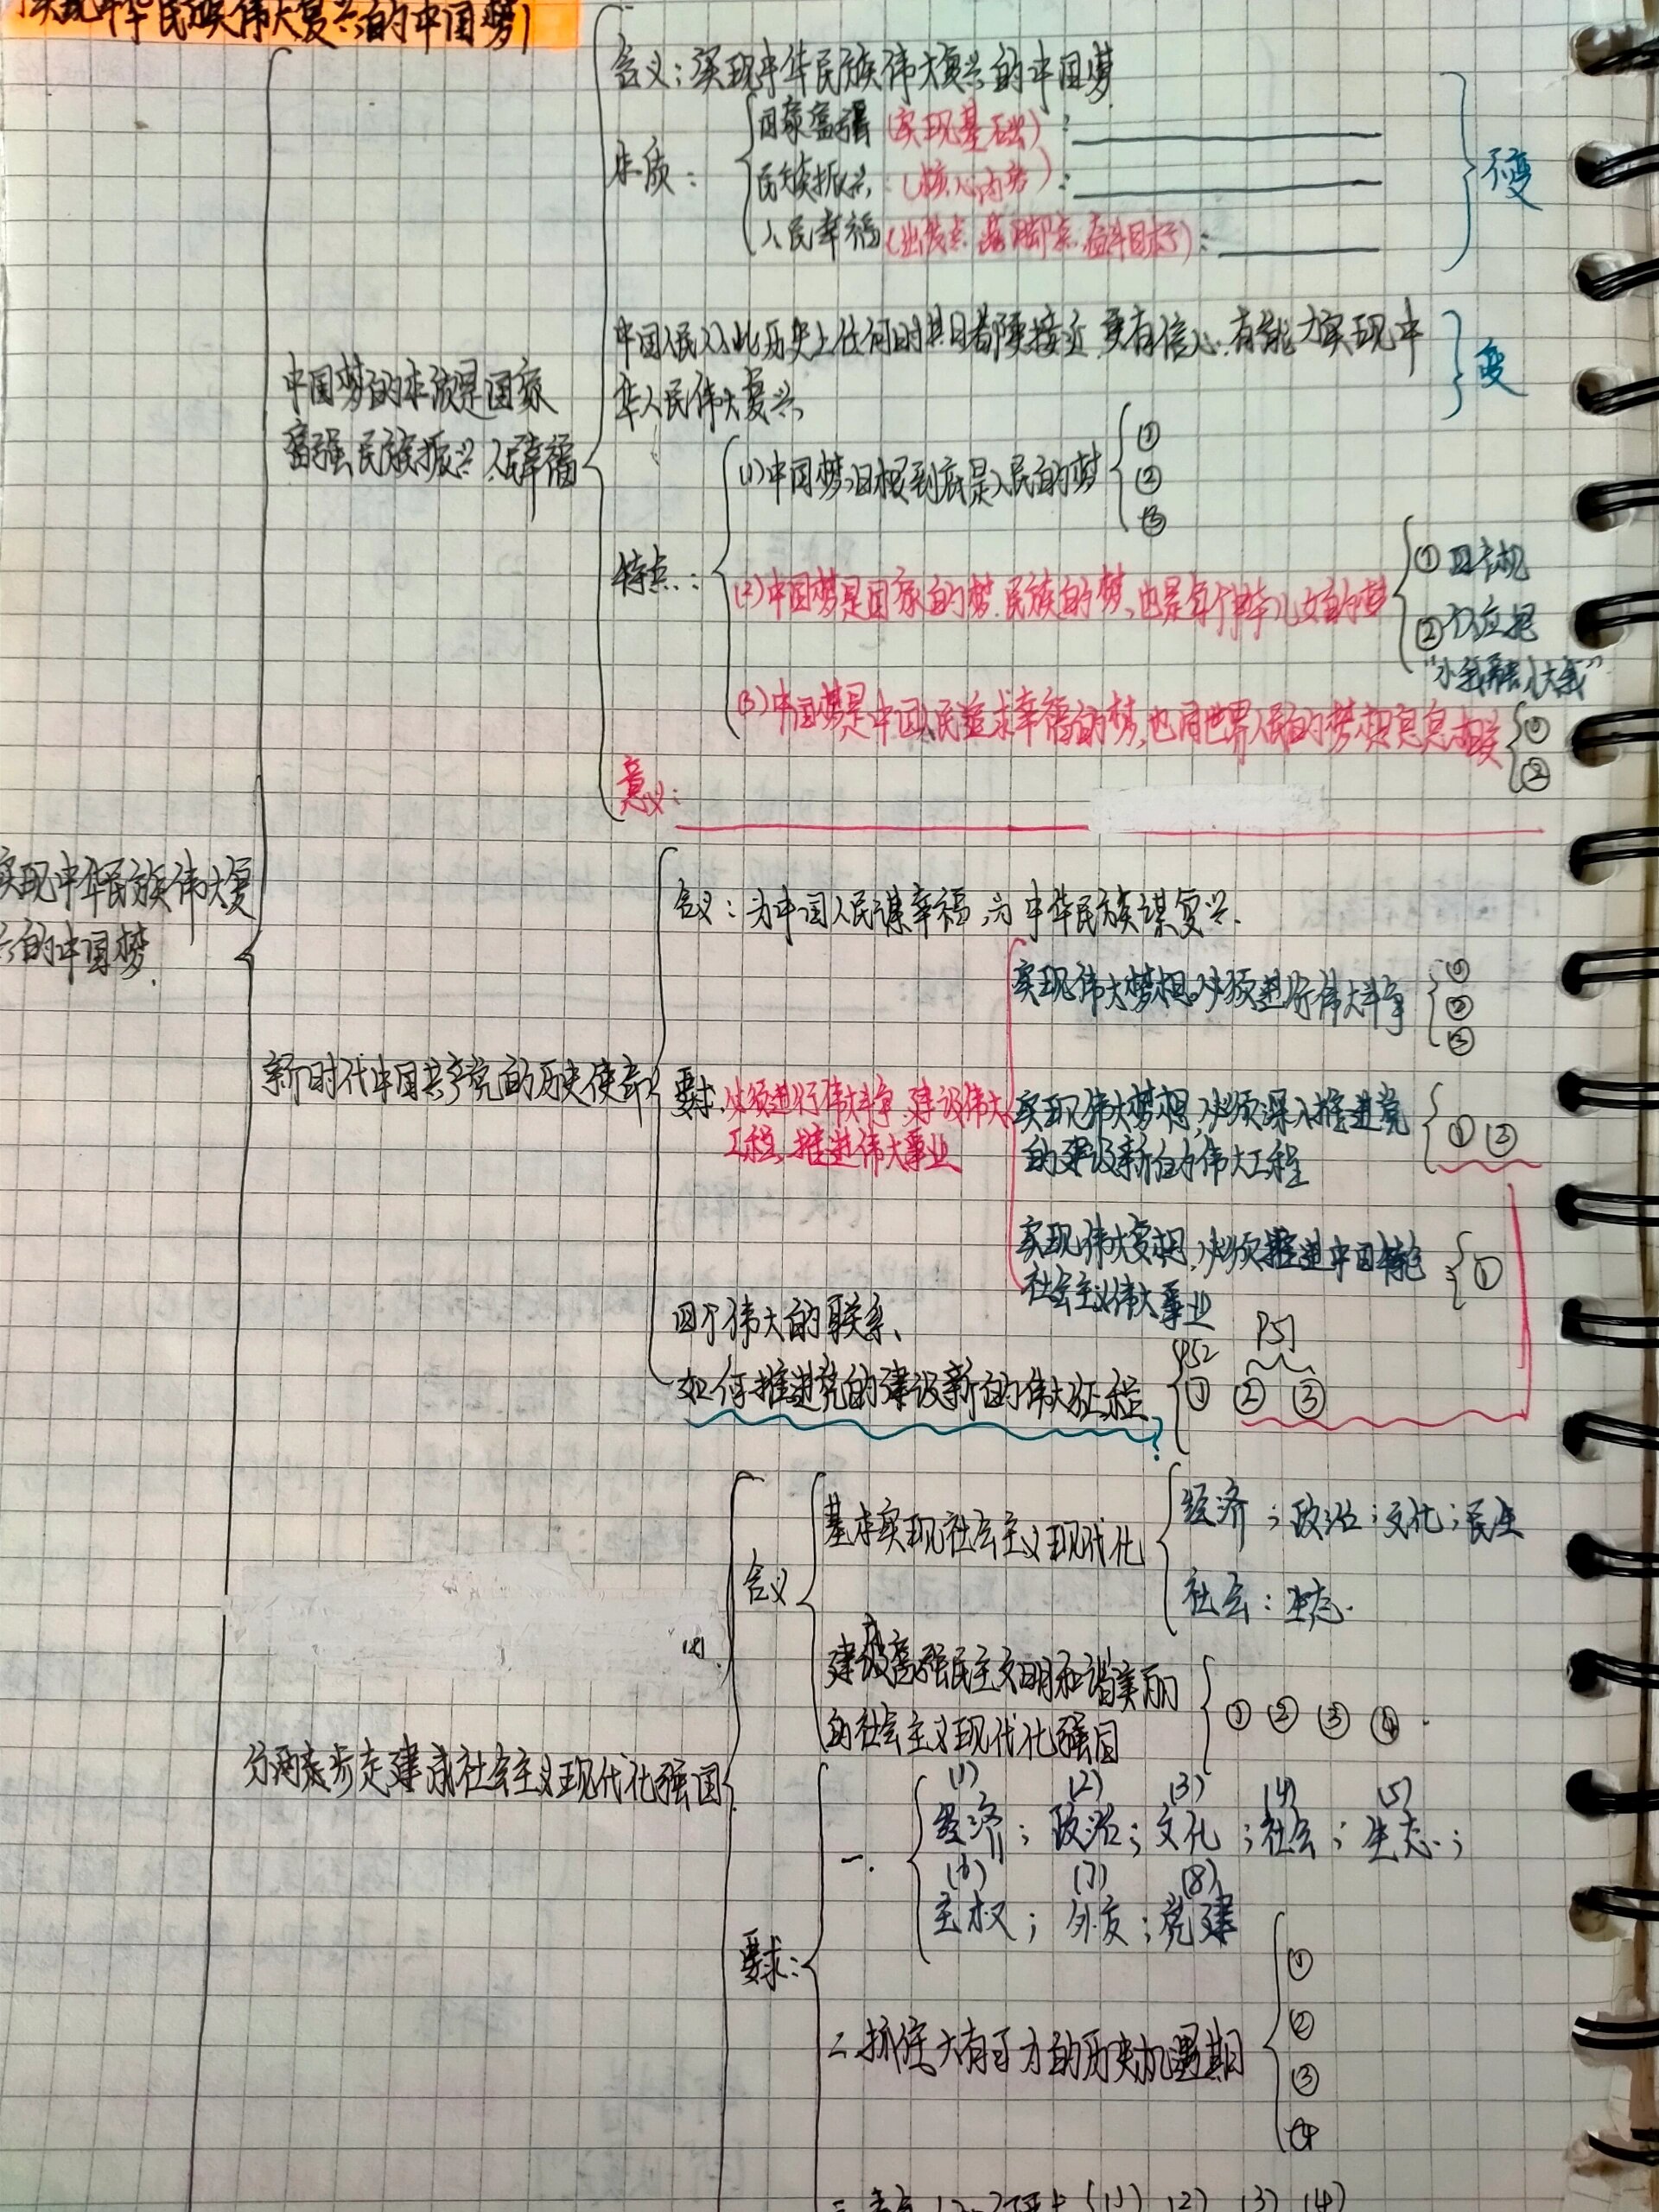 实现中华民族伟大复兴的中国梦
含义：实现中华民族伟大复兴的中国梦
本质：
国家富强（实现基础）：
民族振兴（核心内容）：
人民幸福（出发点、落脚点、奋斗目标）：
不变
中国人民比历史上任何时期都更接近、更有信心、有能力实现中
华人民伟大复兴
变
中国梦的本质是国家
富强、民族振兴、人民幸福
特点：
(1)中国梦归根到底是人民的梦
① ② ③
(2)中国梦是国家的梦、民族的梦，也是每个中华儿女的梦
①
②个人应把
"小我融入大我"
(3)中国梦是中国人民追求幸福的梦，也同世界人民的梦想息息相关
① ②
意义：
实现中华民族伟大复
兴的中国梦.
新时代中国共产党的历史使命
含义：为中国人民谋幸福，为中华民族谋复兴.
要求：必须进行伟大斗争、建设伟大
工程、推进伟大事业
实现伟大梦想，必须进行伟大斗争
① ② ③
实现伟大梦想，必须深入推进党
的建设新的伟大工程
① ②
实现伟大梦想，必须推进中国特色
社会主义伟大事业
①
四个伟大的联系、
如何推进党的建设新的伟大征程？
P52 P51
① ② ③
分两步走建成社会主义现代化强国
含义
基本实现社会主义现代化
经济；政治；文化；民生
社会：生态.
建设富强民主文明和谐美丽
的社会主义现代化强国
① ② ③ ④
要求：
一.
(1) (2) (3) (4) (5)
经济；政治；文化；社会；生态；
(6) (7) (8)
主权；外交；党建
二.抓住大有可为的历史机遇期
① ② ③ ④
三 (1) (2) (3) (4)